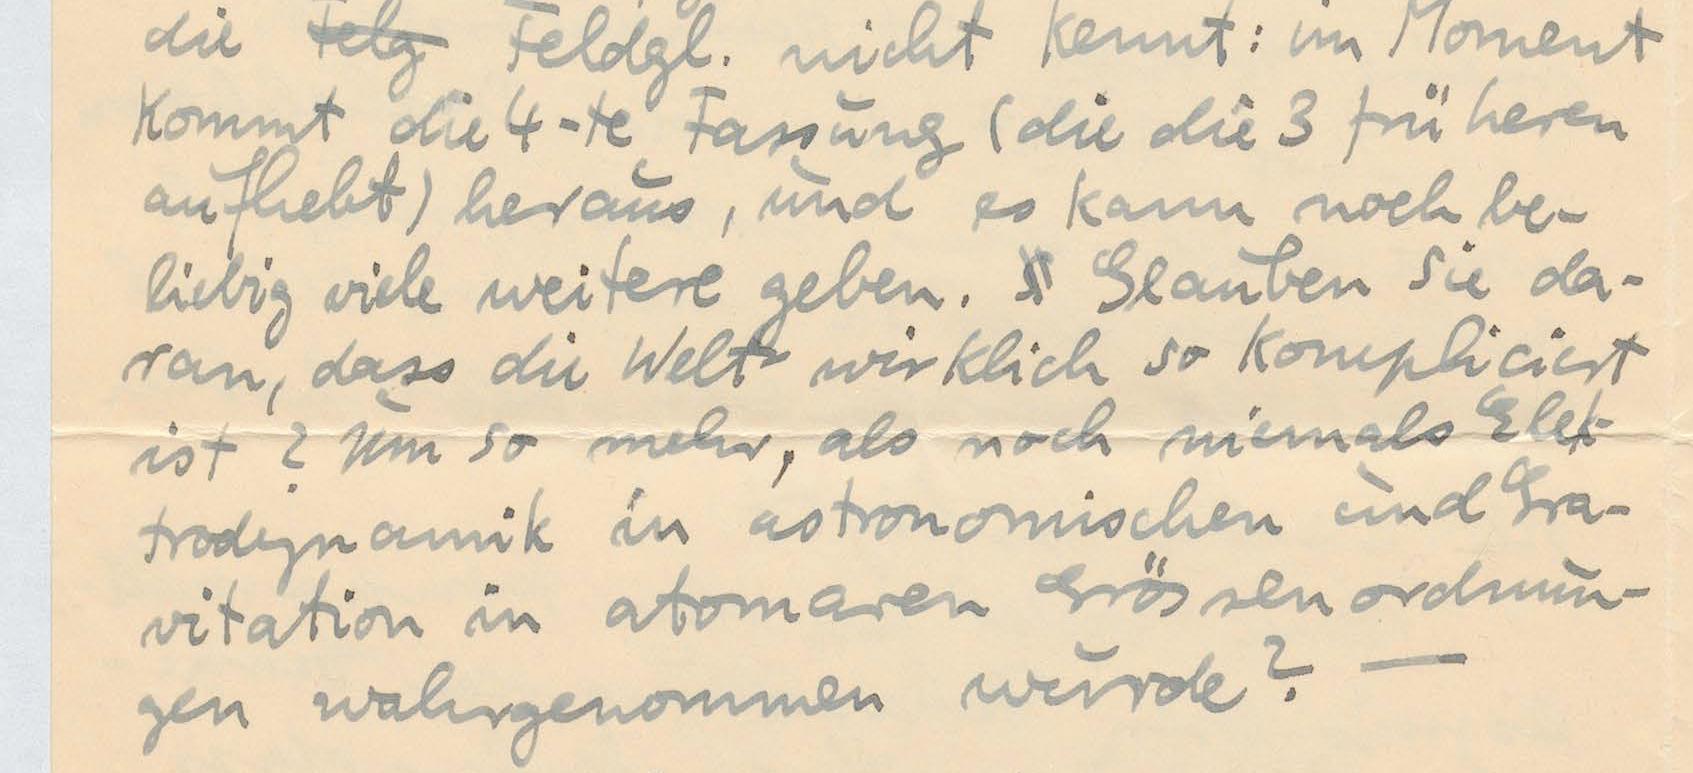 die Felg Feldgl. nicht kennt: im Moment
kommt die 4-te Fassung (die die 3 früheren
aufhebt) heraus, und es kann noch be-
liebig viele weitere geben. Glauben Sie da-
ran, dass die Welt wirklich so kompliciert
ist? Um so mehr, als noch niemals Elek-
trodynamik in astronomischen und Gra-
vitation in atomaren Grössenordnun-
gen wahrgenommen wurde? —